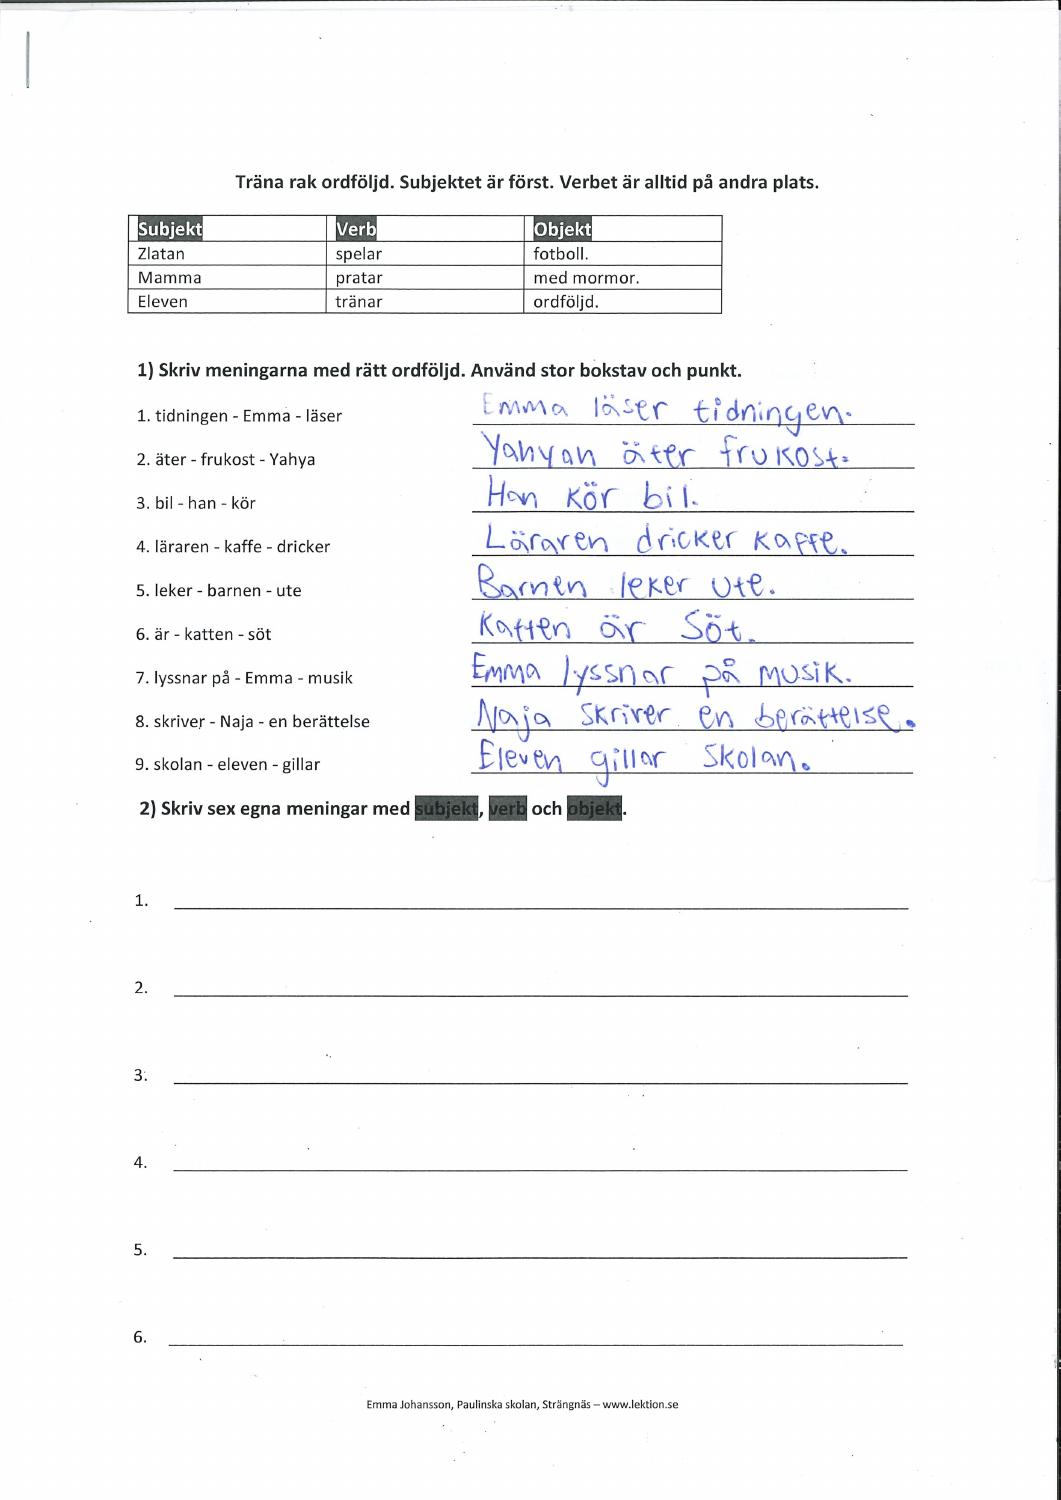 Träna rak ordföljd. Subjektet är först. Verbet är alltid på andra plats.
Subjekt Verb Objekt
Zlatan spelar fotboll.
Mamma pratar med mormor.
Eleven tränar ordföljd.
1) Skriv meningarna med rätt ordföljd. Använd stor bokstav och punkt.
1. tidningen - Emma - läser Emma läser tidningen.
2. äter - frukost - Yahya Yahyan äter frukost.
3. bil - han - kör Han kör bil.
4. läraren - kaffe - dricker Läraren dricker kaffe.
5. leker - barnen - ute Barnen leker ute.
6. är - katten - söt Katten är Söt.
7. lyssnar på - Emma - musik Emma lyssnar på musik.
8. skriver - Naja - en berättelse Naja skriver en berättelse.
9. skolan - eleven - gillar Eleven gillar skolan.
2) Skriv sex egna meningar med subjekt, verb och objekt.
1.
2.
3.
4.
5.
6.
Emma Johansson, Paulinska skolan, Strängnäs – www.lektion.se